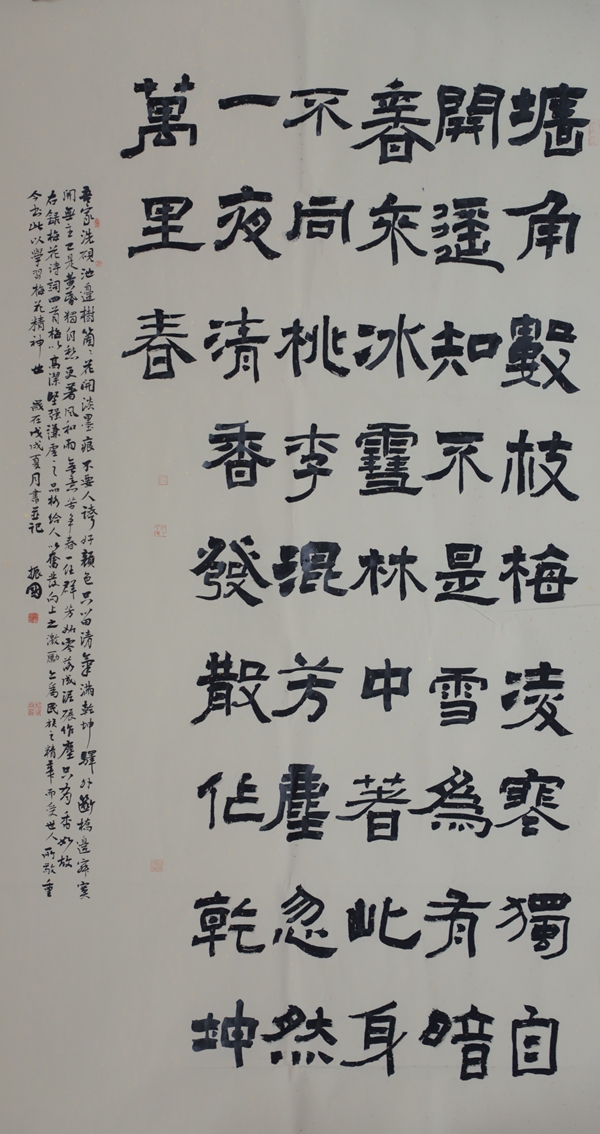 墻角數枝梅凌寒獨自
開遥知不是雪爲有暗
香來冰雪林中著此身
不同桃李混芳塵忽然
一夜清香發散作乾坤
萬里春
吾家洗硯池邊樹箇々花開淡墨痕不要人誇好顏色只留清氣滿乾坤驛外斷橋邊寂寞
開無主已是黃昏獨自愁更著風和雨無意苦爭春一任群芳妒零落成泥碾作塵只有香如故
右錄梅花诗詞四首梅以高潔堅强謙虛之品格給人以奮發向上之激勵亦為民族之精華而受世人所敬重
今书此以學習梅花精神也 歲在戊戌夏月書並记 振國